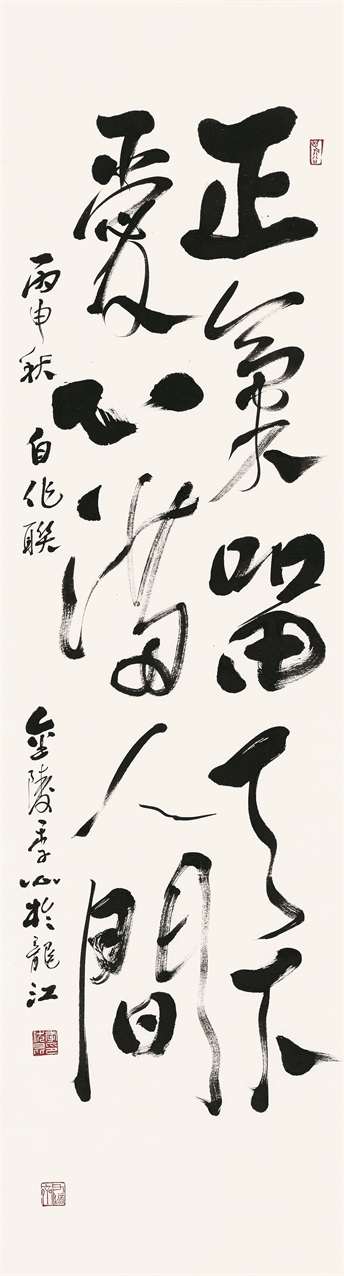 正氣留天下
愛心滿人間
丙申秋 自作聯 金陵季於龍江